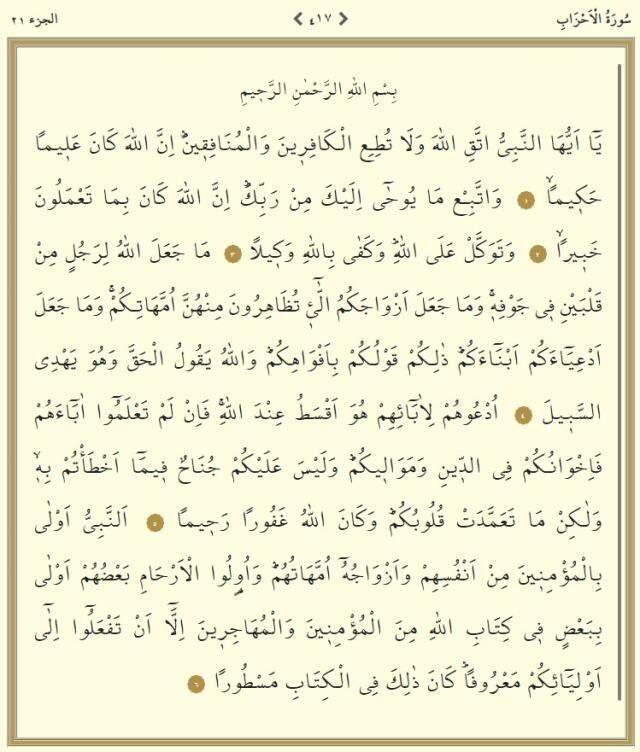 سُورَةُ الْاَحْزَابِ ٤١٧ الجزء ٢١
بِسْمِ اللهِ الرَّحْمٰنِ الرَّحٖيمِ
يَٓا اَيُّهَا النَّبِيُّ اتَّقِ اللهَ وَلَا تُطِعِ الْكَافِرٖينَ وَالْمُنَافِقٖينَۜ اِنَّ اللهَ كَانَ عَلٖيماً
حَكٖيماًۙ ١ وَاتَّبِعْ مَا يُوحٰٓى اِلَيْكَ مِنْ رَبِّكَۜ اِنَّ اللهَ كَانَ بِمَا تَعْمَلُونَ
خَبٖيراًۙ ٢ وَتَوَكَّلْ عَلَى اللهِۜ وَكَفٰى بِاللهِ وَكٖيلاً ٣ مَا جَعَلَ اللهُ لِرَجُلٍ مِنْ
قَلْبَيْنِ فٖي جَوْفِهٖۚ وَمَا جَعَلَ اَزْوَاجَكُمُ الّٰٓـٖٔي تُظَاهِرُونَ مِنْهُنَّ اُمَّهَاتِكُمْۚ وَمَا جَعَلَ
اَدْعِيَٓاءَكُمْ اَبْنَٓاءَكُمْۜ ذٰلِكُمْ قَوْلُكُمْ بِاَفْوَاهِكُمْۜ وَاللهُ يَقُولُ الْحَقَّ وَهُوَ يَهْدِي
السَّبٖيلَ ٤ اُدْعُوهُمْ لِاٰبَٓائِهِمْ هُوَ اَقْسَطُ عِنْدَ اللهِۚ فَاِنْ لَمْ تَعْلَمُٓوا اٰبَٓاءَهُمْ
فَاِخْوَانُكُمْ فِي الدّٖينِ وَمَوَالٖيكُمْۜ وَلَيْسَ عَلَيْكُمْ جُنَاحٌ فٖيمَٓا اَخْطَأْتُمْ بِهٖۙ
وَلٰكِنْ مَا تَعَمَّدَتْ قُلُوبُكُمْۜ وَكَانَ اللهُ غَفُوراً رَحٖيماً ٥ اَلنَّبِيُّ اَوْلٰى
بِالْمُؤْمِنٖينَ مِنْ اَنْفُسِهِمْ وَاَزْوَاجُهُٓ اُمَّهَاتُهُمْۜ وَاُو۬لُوا الْاَرْحَامِ بَعْضُهُمْ اَوْلٰى
بِبَعْضٍ فٖي كِتَابِ اللهِ مِنَ الْمُؤْمِنٖينَ وَالْمُهَاجِرٖينَ اِلَّٓا اَنْ تَفْعَلُٓوا اِلٰٓى
اَوْلِيَٓائِكُمْ مَعْرُوفاًۜ كَانَ ذٰلِكَ فِي الْكِتَابِ مَسْطُوراً ٦